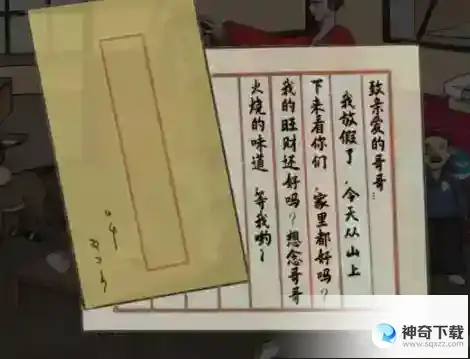 致亲爱的哥哥：
我放假了，今天从山上
下来看你们，家里都好吗？
我的旺财还好吗？想念哥哥
火烧的味道，等我哟~
神奇下载
www.sqxzz.com